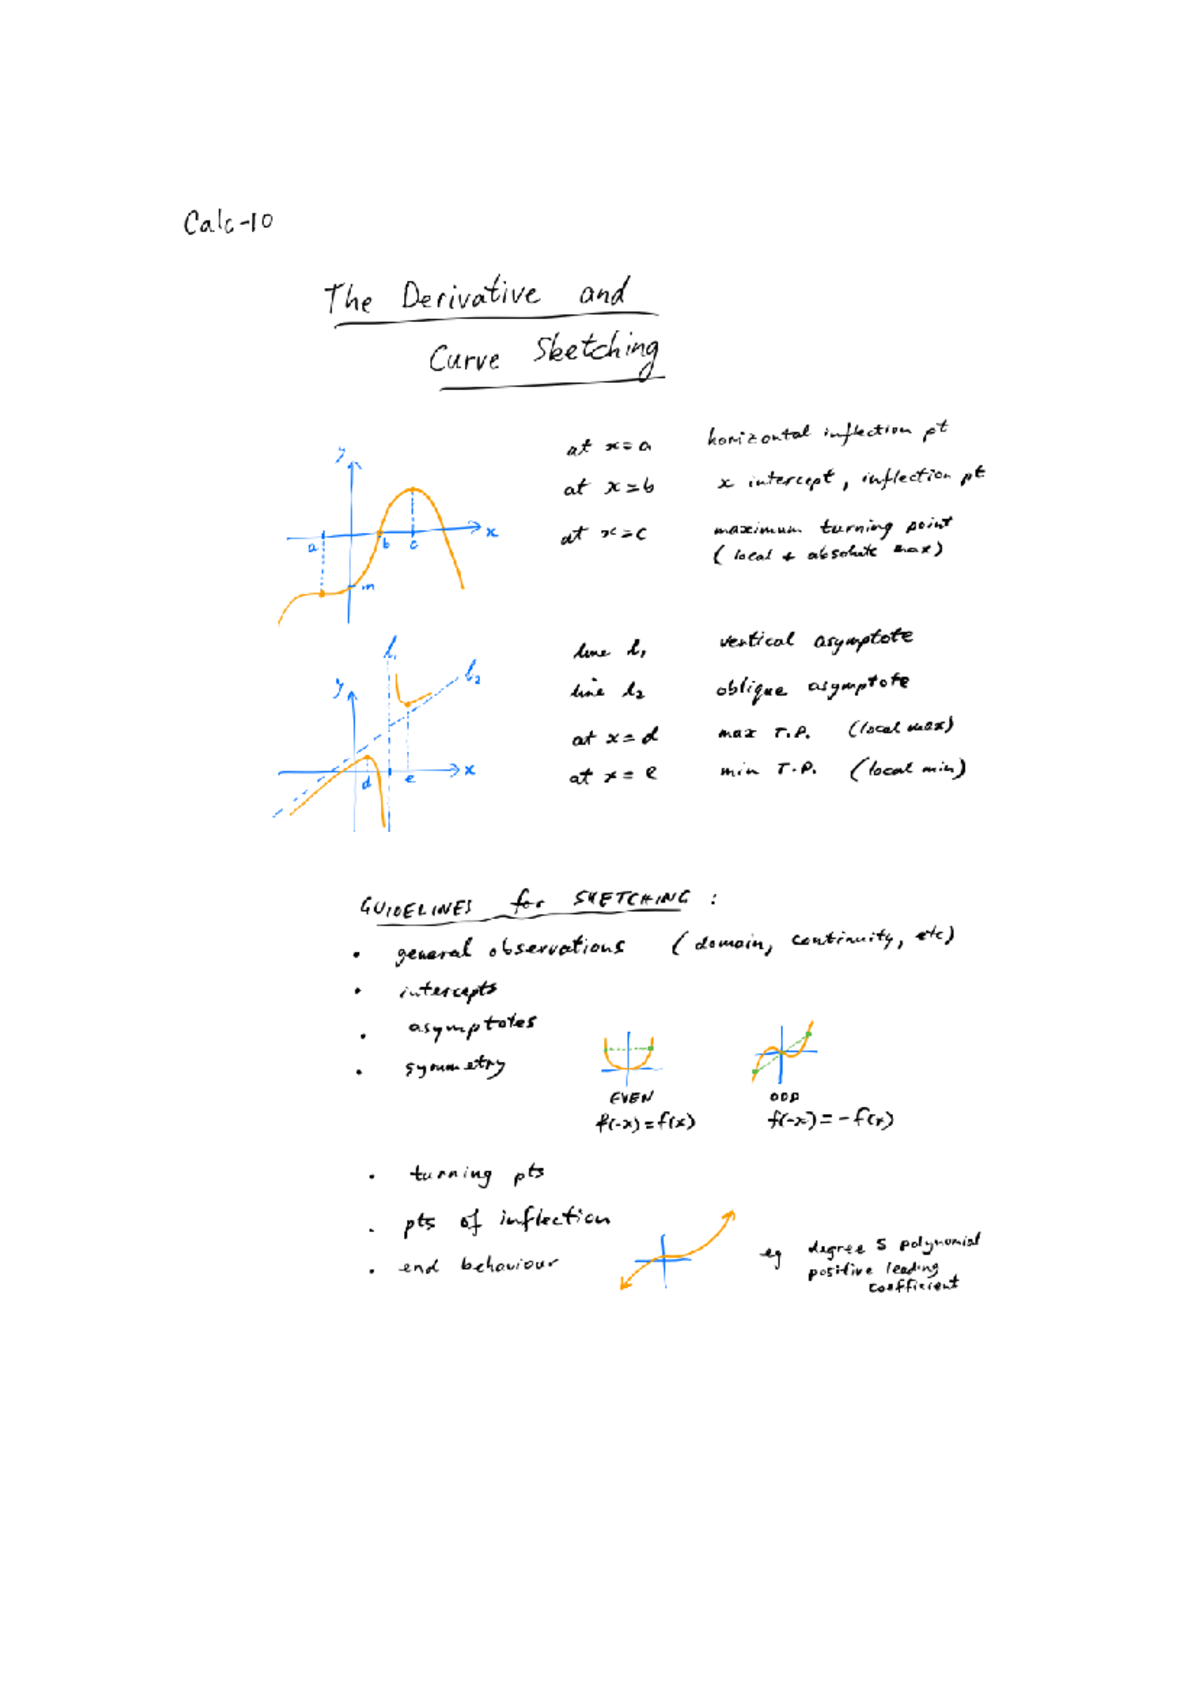 Calc-10
The Derivative and
Curve Sketching
y
x
a
b
c
m
at x=a horizontal inflection pt
at x=b x intercept, inflection pt
at x=c maximum turning point
(local + absolute max)
l₁
l₂
y
x
d
e
line l₁ vertical asymptote
line l₂ oblique asymptote
at x=d max T.P. (local max)
at x=e min T.P. (local min)
GUIDELINES for SKETCHING :
• general observations (domain, continuity, etc)
• intercepts
• asymptotes
• symmetry
EVEN ODD
f(-x)=f(x) f(-x)=-f(x)
• turning pts
• pts of inflection
• end behaviour
eg degree 5 polynomial
positive leading
coefficient